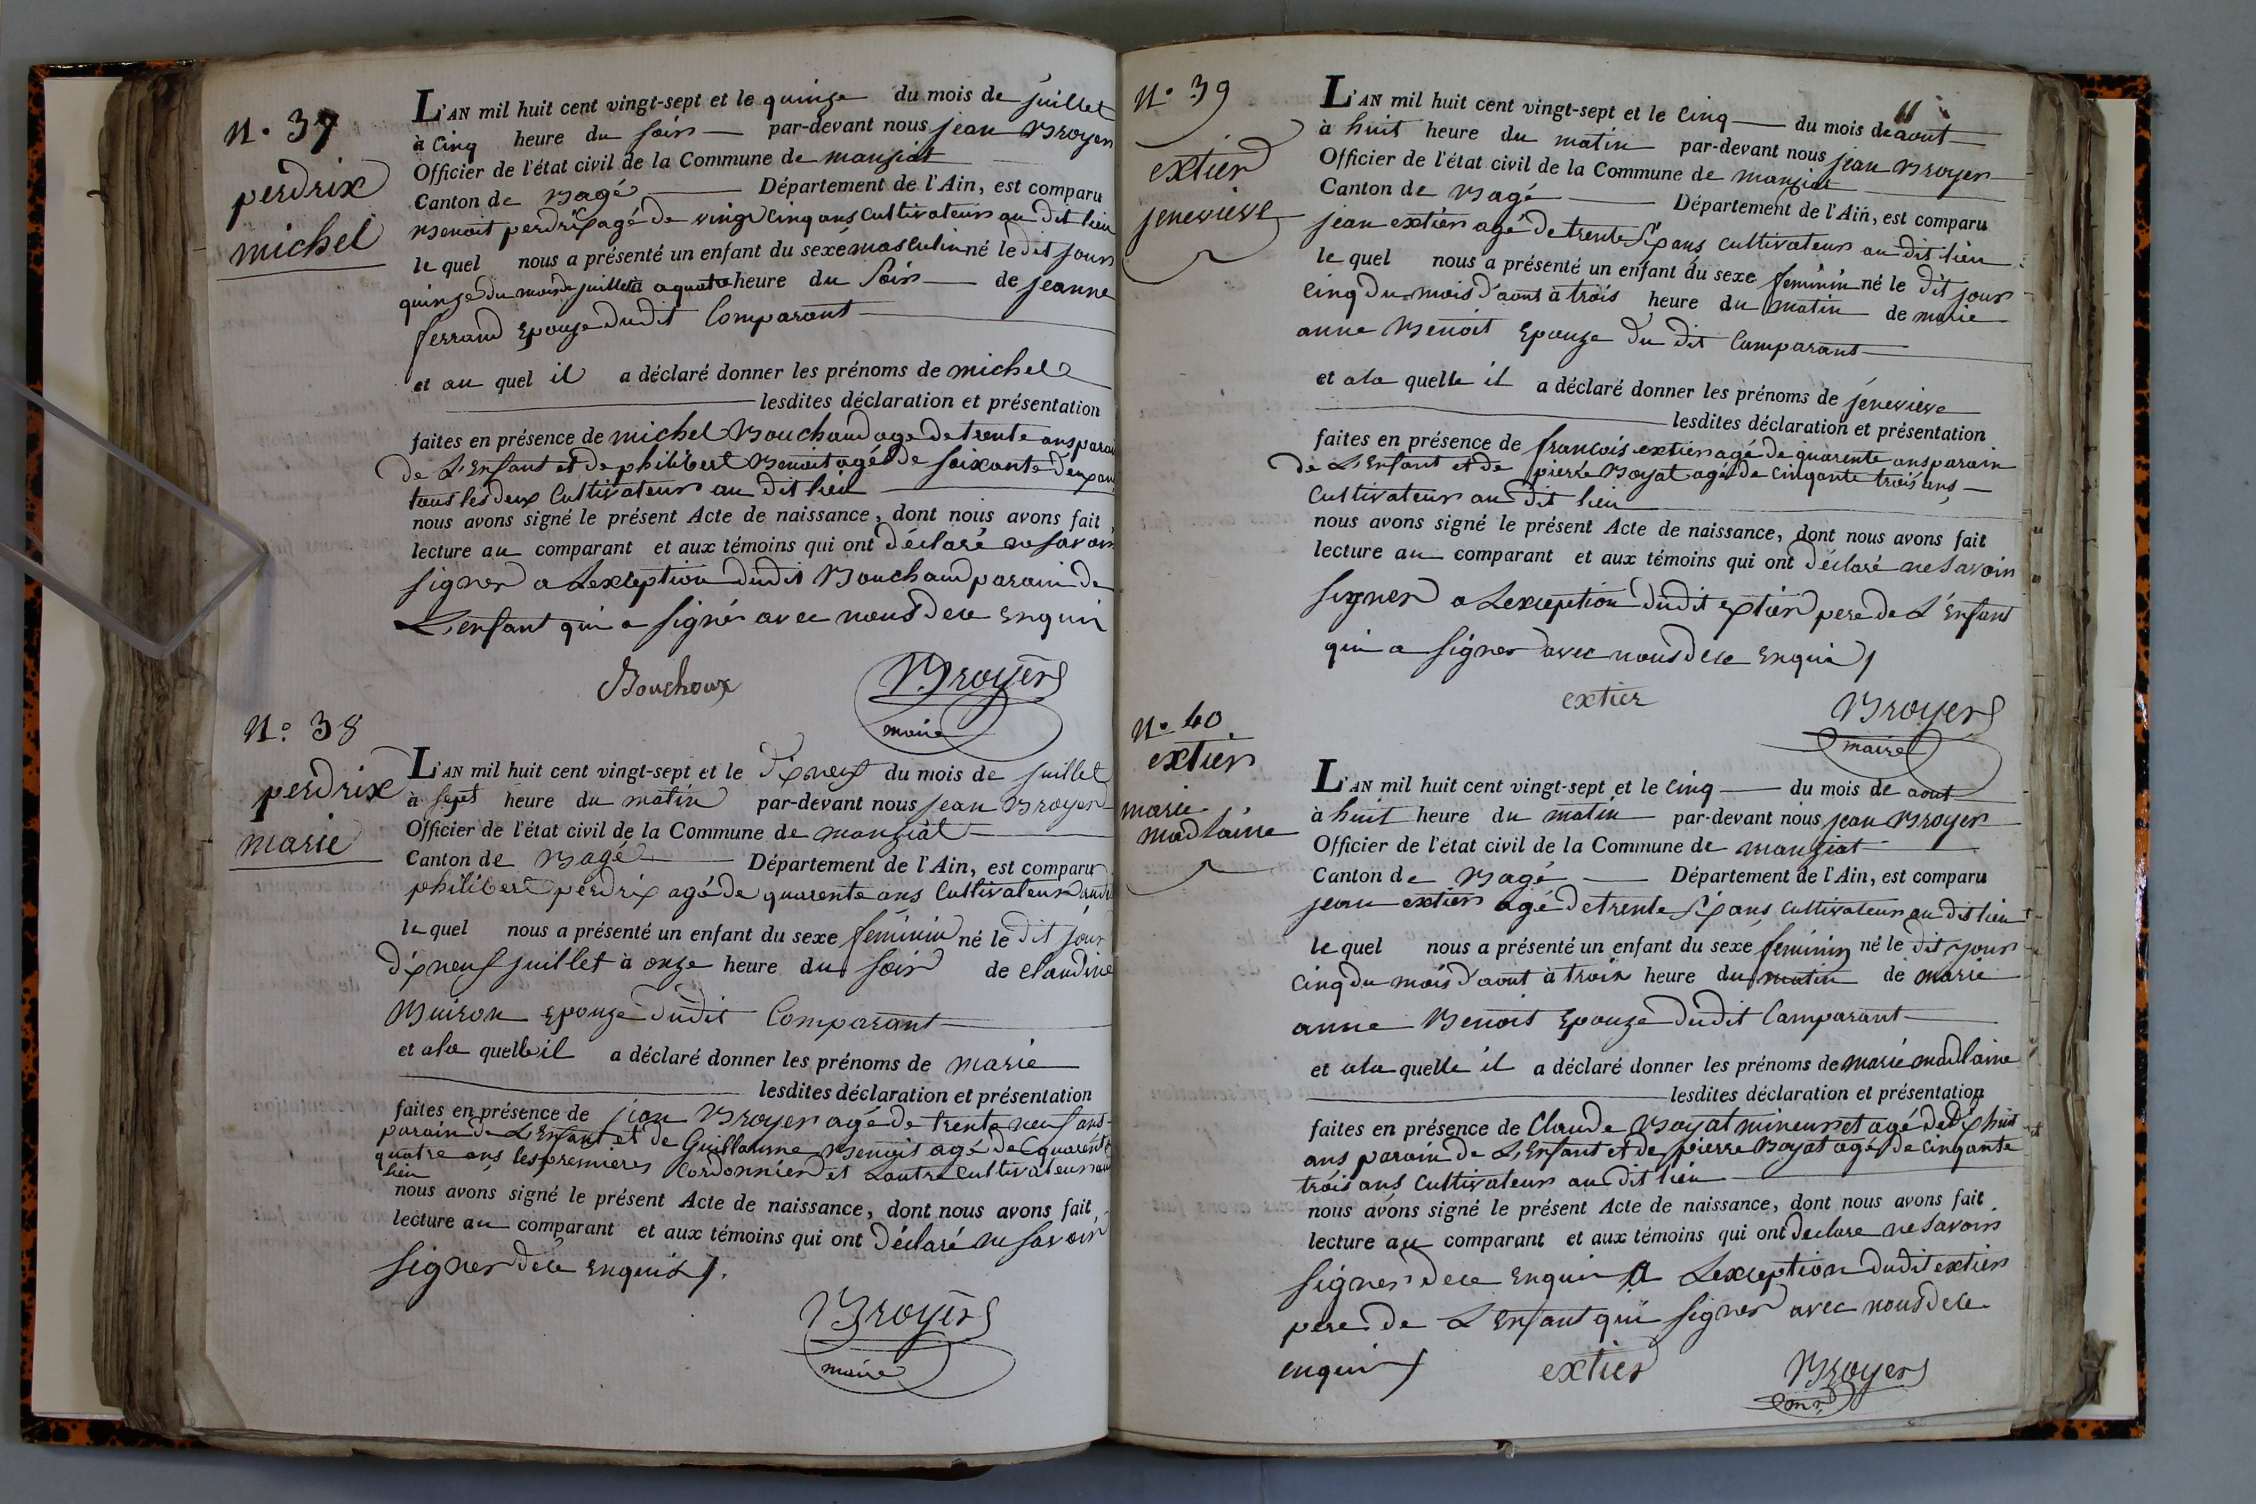 N.o 37
perdrix
michel
L'AN mil huit cent vingt-sept et le quinze du mois de juillet
à Cinq heure du soir — par-devant nous jean Broyer
Officier de l'état civil de la Commune de manziat
Canton de Bagé — Département de l'Ain, est comparu
Benoit perdrix agé de vingt cinq ans Cultivateur au dit lieu
le quel nous a présenté un enfant du sexe masculin né le dit jour
quinze du mois de juillet à quatre heure du Soir — de jeanne
ferrand Epouze dudit Comparant
et au quel il a déclaré donner les prénoms de michel
lesdites déclaration et présentation
faites en présence de michel Bouchaud agé de trente ans parain
de L'Enfant et de philibert Benoit agé de soixante deux ans
tous les deux Cultivateur au dit lieu
nous avons signé le présent Acte de naissance, dont nous avons fait
lecture au comparant et aux témoins qui ont déclaré ne savoir
signer a Lexception dudit Bouchaud parain de
L'enfant qui a signé avec nous de ce Enquir
Bouchoux Broyer
maire
N.o 38
perdrix
marie
L'AN mil huit cent vingt-sept et le dixneuf du mois de juillet
à sept heure du matin par-devant nous jean Broyer
Officier de l'état civil de la Commune de manziat
Canton de Bagé — Département de l'Ain, est comparu
philibert perdrix agé de quarente ans Cultivateur audit
le quel nous a présenté un enfant du sexe féminin né le dit jour
dixneuf juillet à onze heure du soir de claudine
Buiron epouze dudit Comparant
et ala quelle il a déclaré donner les prénoms de marie
lesdites déclaration et présentation
faites en présence de jean Broyer agé de trente neuf ans
parain de L'Enfant et de Guillaume Benoit agé de quarente
quatre ans les premieres Cordonnier et Lautre Cultivateur au
lieu
nous avons signé le présent Acte de naissance, dont nous avons fait
lecture au comparant et aux témoins qui ont déclaré ne savoir
signer de ce enquis /.
Broyer
maire
N.o 39
extier
jenevieve
L'AN mil huit cent vingt-sept et le Cinq — du mois de aout
à huit heure du matin par-devant nous jean Broyer
Officier de l'état civil de la Commune de manziat
Canton de Bagé — Département de l'Ain, est comparu
jean extier agé de trente six ans Cultivateur au dit lieu
le quel nous a présenté un enfant du sexe feminin né le dit jour
Cinq du mois d'aout à trois heure du matin de marie
anne Benoit Epouze du dit Comparant
et ala quelle il a déclaré donner les prénoms de jenevieve
lesdites déclaration et présentation
faites en présence de francois extier agé de quarente ans parain
de L'Enfant et de pierre Boyat agé de Cinqante trois ans
Cultivateur au dit lieu
nous avons signé le présent Acte de naissance, dont nous avons fait
lecture au comparant et aux témoins qui ont déclaré ne Savoir
signer a Lexception dudit extier pere de L'Enfant
qui a signer avec nous de ce Enquis /
extier Broyer
maire
N.o 40
extier
marie
madlaine
L'AN mil huit cent vingt-sept et le Cinq — du mois de aout
à huit heure du matin par-devant nous jean Broyer
Officier de l'état civil de la Commune de manziat
Canton de Bagé — Département de l'Ain, est comparu
jean extier agé de trente six ans Cultivateur au dit lieu
le quel nous a présenté un enfant du sexe feminin né le dit jour
Cinq du mois d'aout à trois heure du matin de marie
anne Benoit Epouze dudit Comparant
et ala quelle il a déclaré donner les prénoms de marie madlaine
lesdites déclaration et présentation
faites en présence de Claude Boyat mineur et agé de dix huit
ans parain de L'Enfant et de pierre Boyat agé de Cinqante
trois ans Cultivateur au dit lieu
nous avons signé le présent Acte de naissance, dont nous avons fait
lecture au comparant et aux témoins qui ont declare ne Savoir
signer de ce enquir A Lexception dudit extier
pere de L'Enfant qui signer avec nous de ce
enquir /
extier Broyer
mr